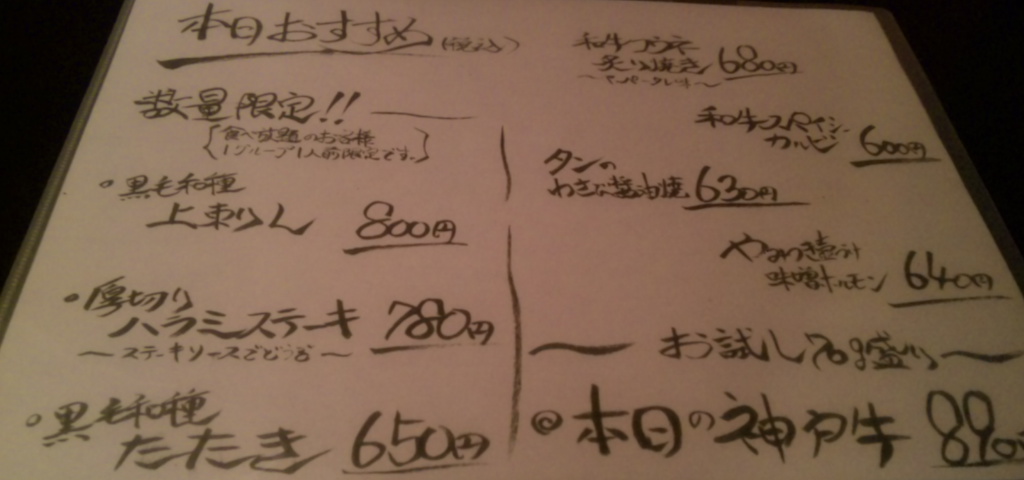 本日おすすめ (税込)
数量限定!!
食べ放題のお客様
1グループ1人前限定です。
・黒毛和種
上赤りん 800円
・厚切り
ハラミステーキ 780円
〜ステーキソースでどうぞ〜
・黒毛和種
たたき 650円
和牛
炙り焼き 680円
和牛スパイシー
カルビ 600円
タンの
わさび醤油焼 630円
やみつき壷汁
味噌ホルモン 640円
〜お試し70g盛り〜
@本日の神戸牛 890